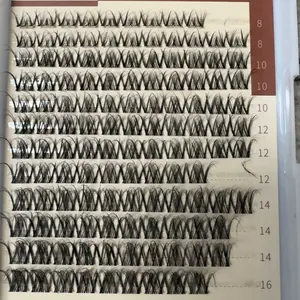 8
8
10
10
10
12
12
12
14
14
14
16